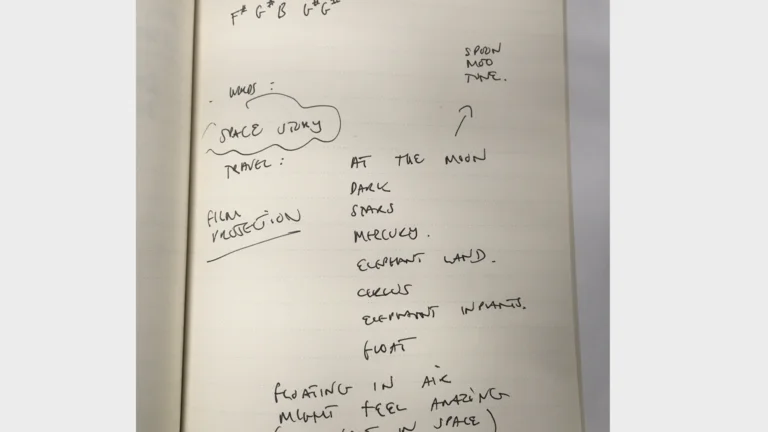 F# G# B G# G#
SPOON
MOO
TUNE.
WORDS:
SPACE STORY
TRAVEL:
AT THE MOON
DARK
STARS
MERCURY.
ELEPHANT LAND.
CIRCUS
ELEPHANT IN PANTS.
FLOAT
FILM
PROJECTION
FLOATING IN AIR
MIGHT FEEL AMAZING
IN SPACE)